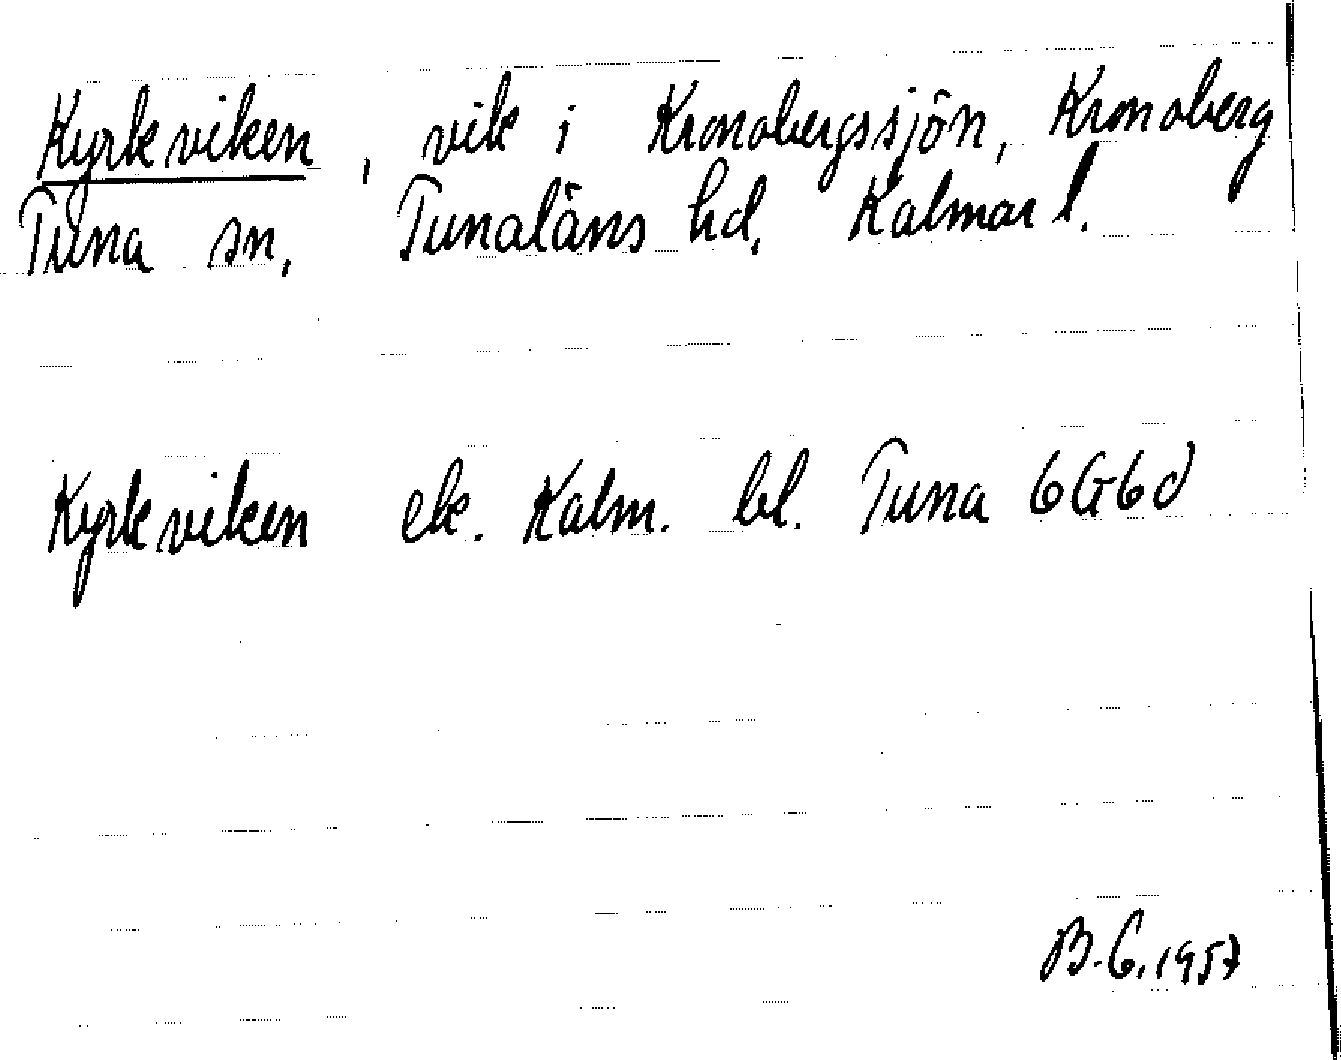 Kyrkviken, vik i Kronobergssjön, Kronoberg
Tuna sn, Tunaläns hd, Kalmar l.
Kyrkviken ek. Kalm. bl. Tuna 6G6d
B.G. 1957